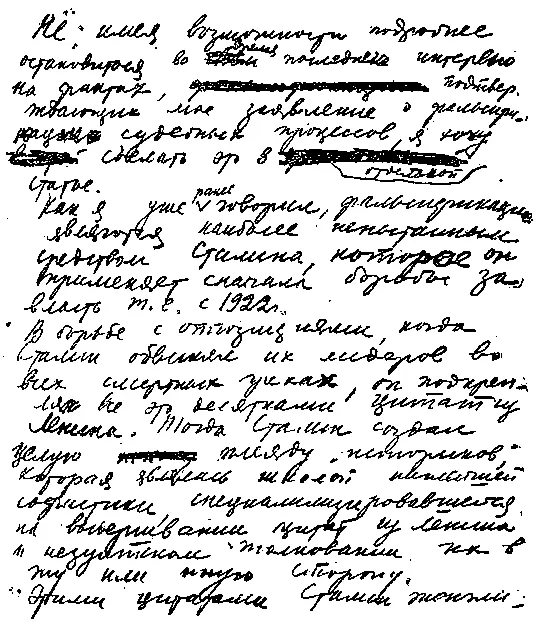 Не имея возможности подробнее
остановиться во время последнего интервью
на фактах, подтвер-
ждающих мое заявление о фальсифи-
кации судебных процессов, я хочу
сделать это в
отдельной
статье.
Как я уже ранее говорил, фальсификации
являются наиболее испытанным
средством Сталина, которое он
применяет с начала борьбы за
власть т.е. с 1922г.
В борьбе с оппозициями, когда
Сталин обвинял их лидеров во
всех смертных грехах, он подкреп-
лял все это десятками цитат из
Ленина. Тогда Сталин создал
целую плеяду "историков",
которая явилась школой
софистики, специализировавшейся
на выдергивании цитат из Ленина
и толковании их в
ту или иную сторону.
Этими цитатами Сталин